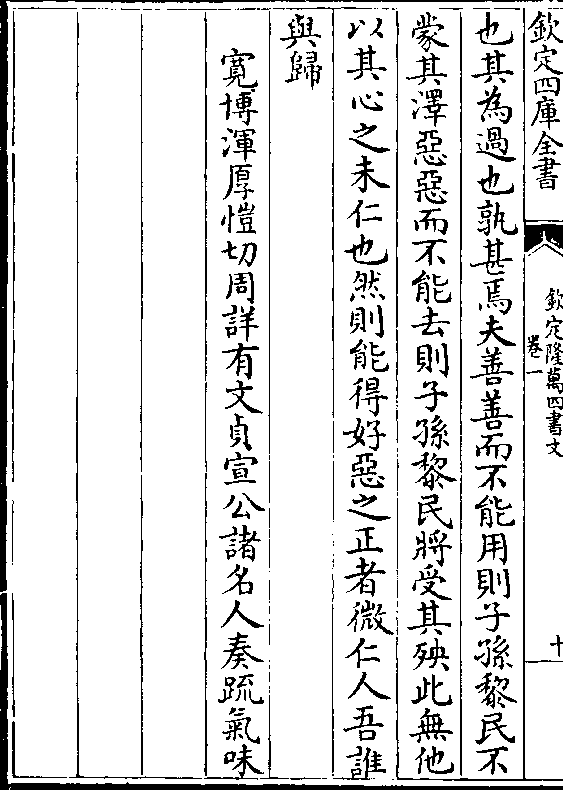 欽定四庫全書
欽定隆萬四書文
卷一
十
也其為過也孰甚焉夫善善而不能用則子孫黎民不
蒙其澤惡惡而不能去則子孫黎民將受其殃此無他
以其心之未仁也然則能得好惡之正者微仁人吾誰
與歸
寛博渾厚愷切周詳有文貞宣公諸名人奏疏氣味